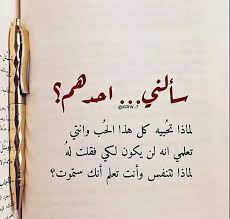 سألني... احدهم؟
لماذا تحُبيه كل هذا الحُب وانتي
تعلمي انه لن يكون لكي فقلت لهُ
لماذا تتنفس وأنت تعلم أنك ستموت؟